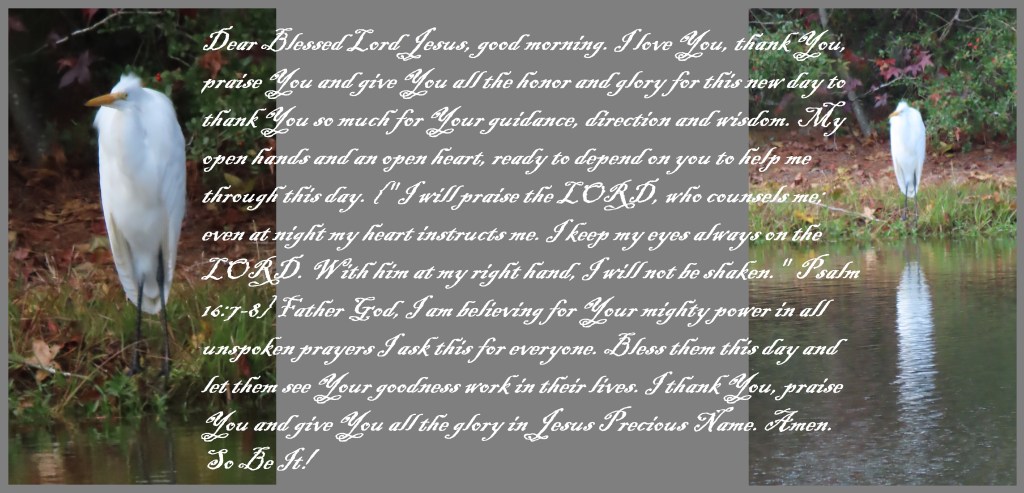 Dear Blessed Lord Jesus, good morning. I love You, thank You,
praise You and give You all the honor and glory for this new day to
thank You so much for Your guidance, direction and wisdom. My
open hands and an open heart, ready to depend on you to help me
through this day. {" I will praise the LORD, who counsels me;
even at night my heart instructs me. I keep my eyes always on the
LORD. With him at my right hand, I will not be shaken. " Psalm
16:7-8} Father God, I am believing for Your mighty power in all
unspoken prayers I ask this for everyone. Bless them this day and
let them see Your goodness work in their lives. I thank You, praise
You and give You all the glory in Jesus Precious Name. Amen.
So Be It!